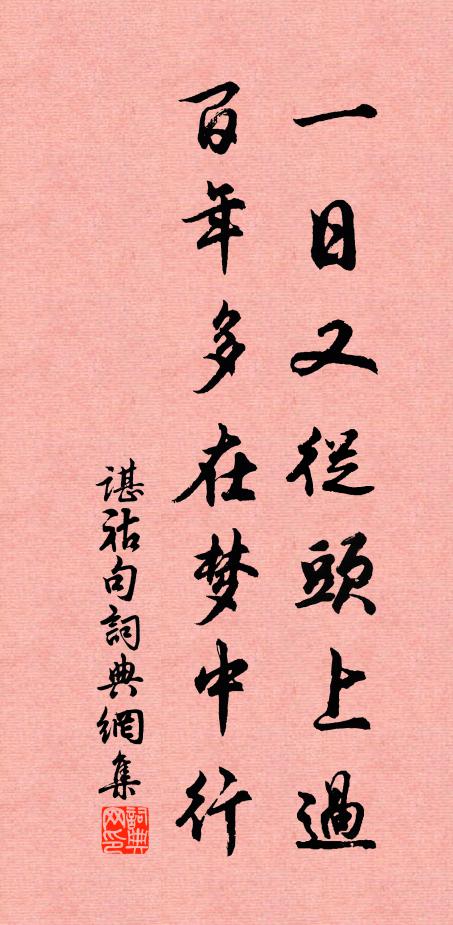 一日又從頭上過
百年多在梦中行
諶祜句詞典網集
詞典
网印